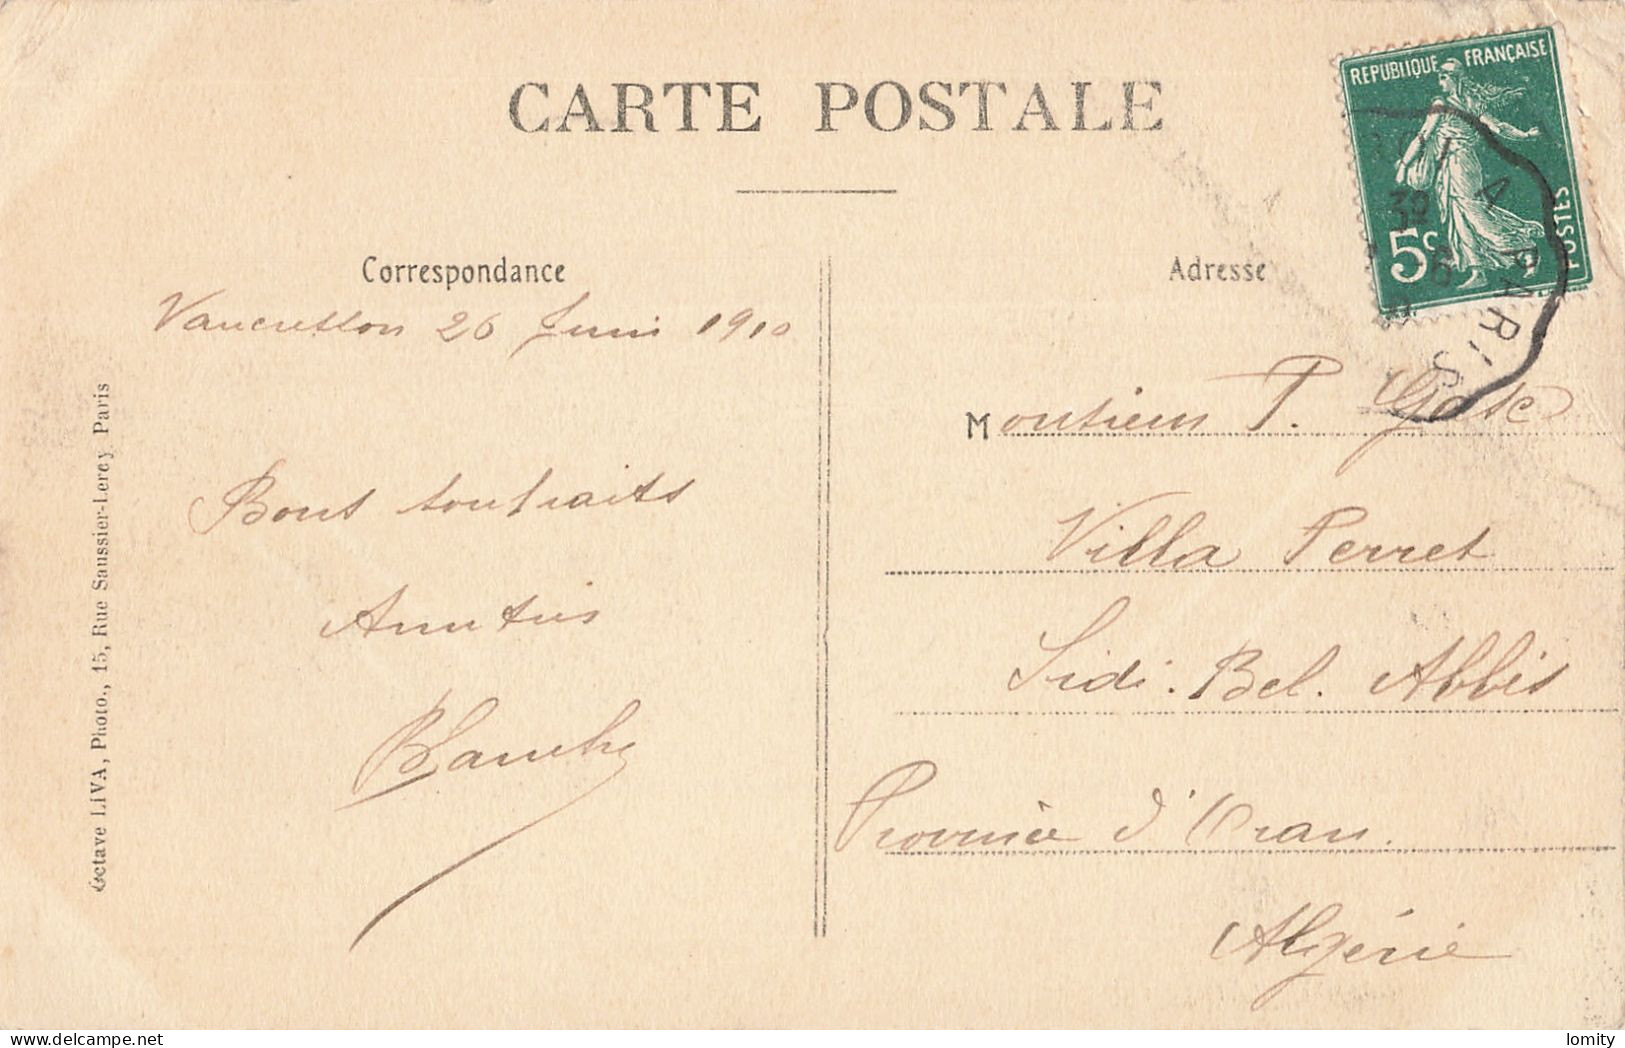 CARTE POSTALE
REPUBLIQUE FRANÇAISE
5c
POSTES
A PARIS
Correspondance
Vaucresson 26 Juin 1910
Bons souhaits
Amitiés
Blanche
Octave LIVA, Photo., 15, Rue Saussier-Lerey Paris
Adresse
Monsieur P.
Villa Perret
Sidi. Bel. Abbès
Province d'Oran.
Algérie
lomity